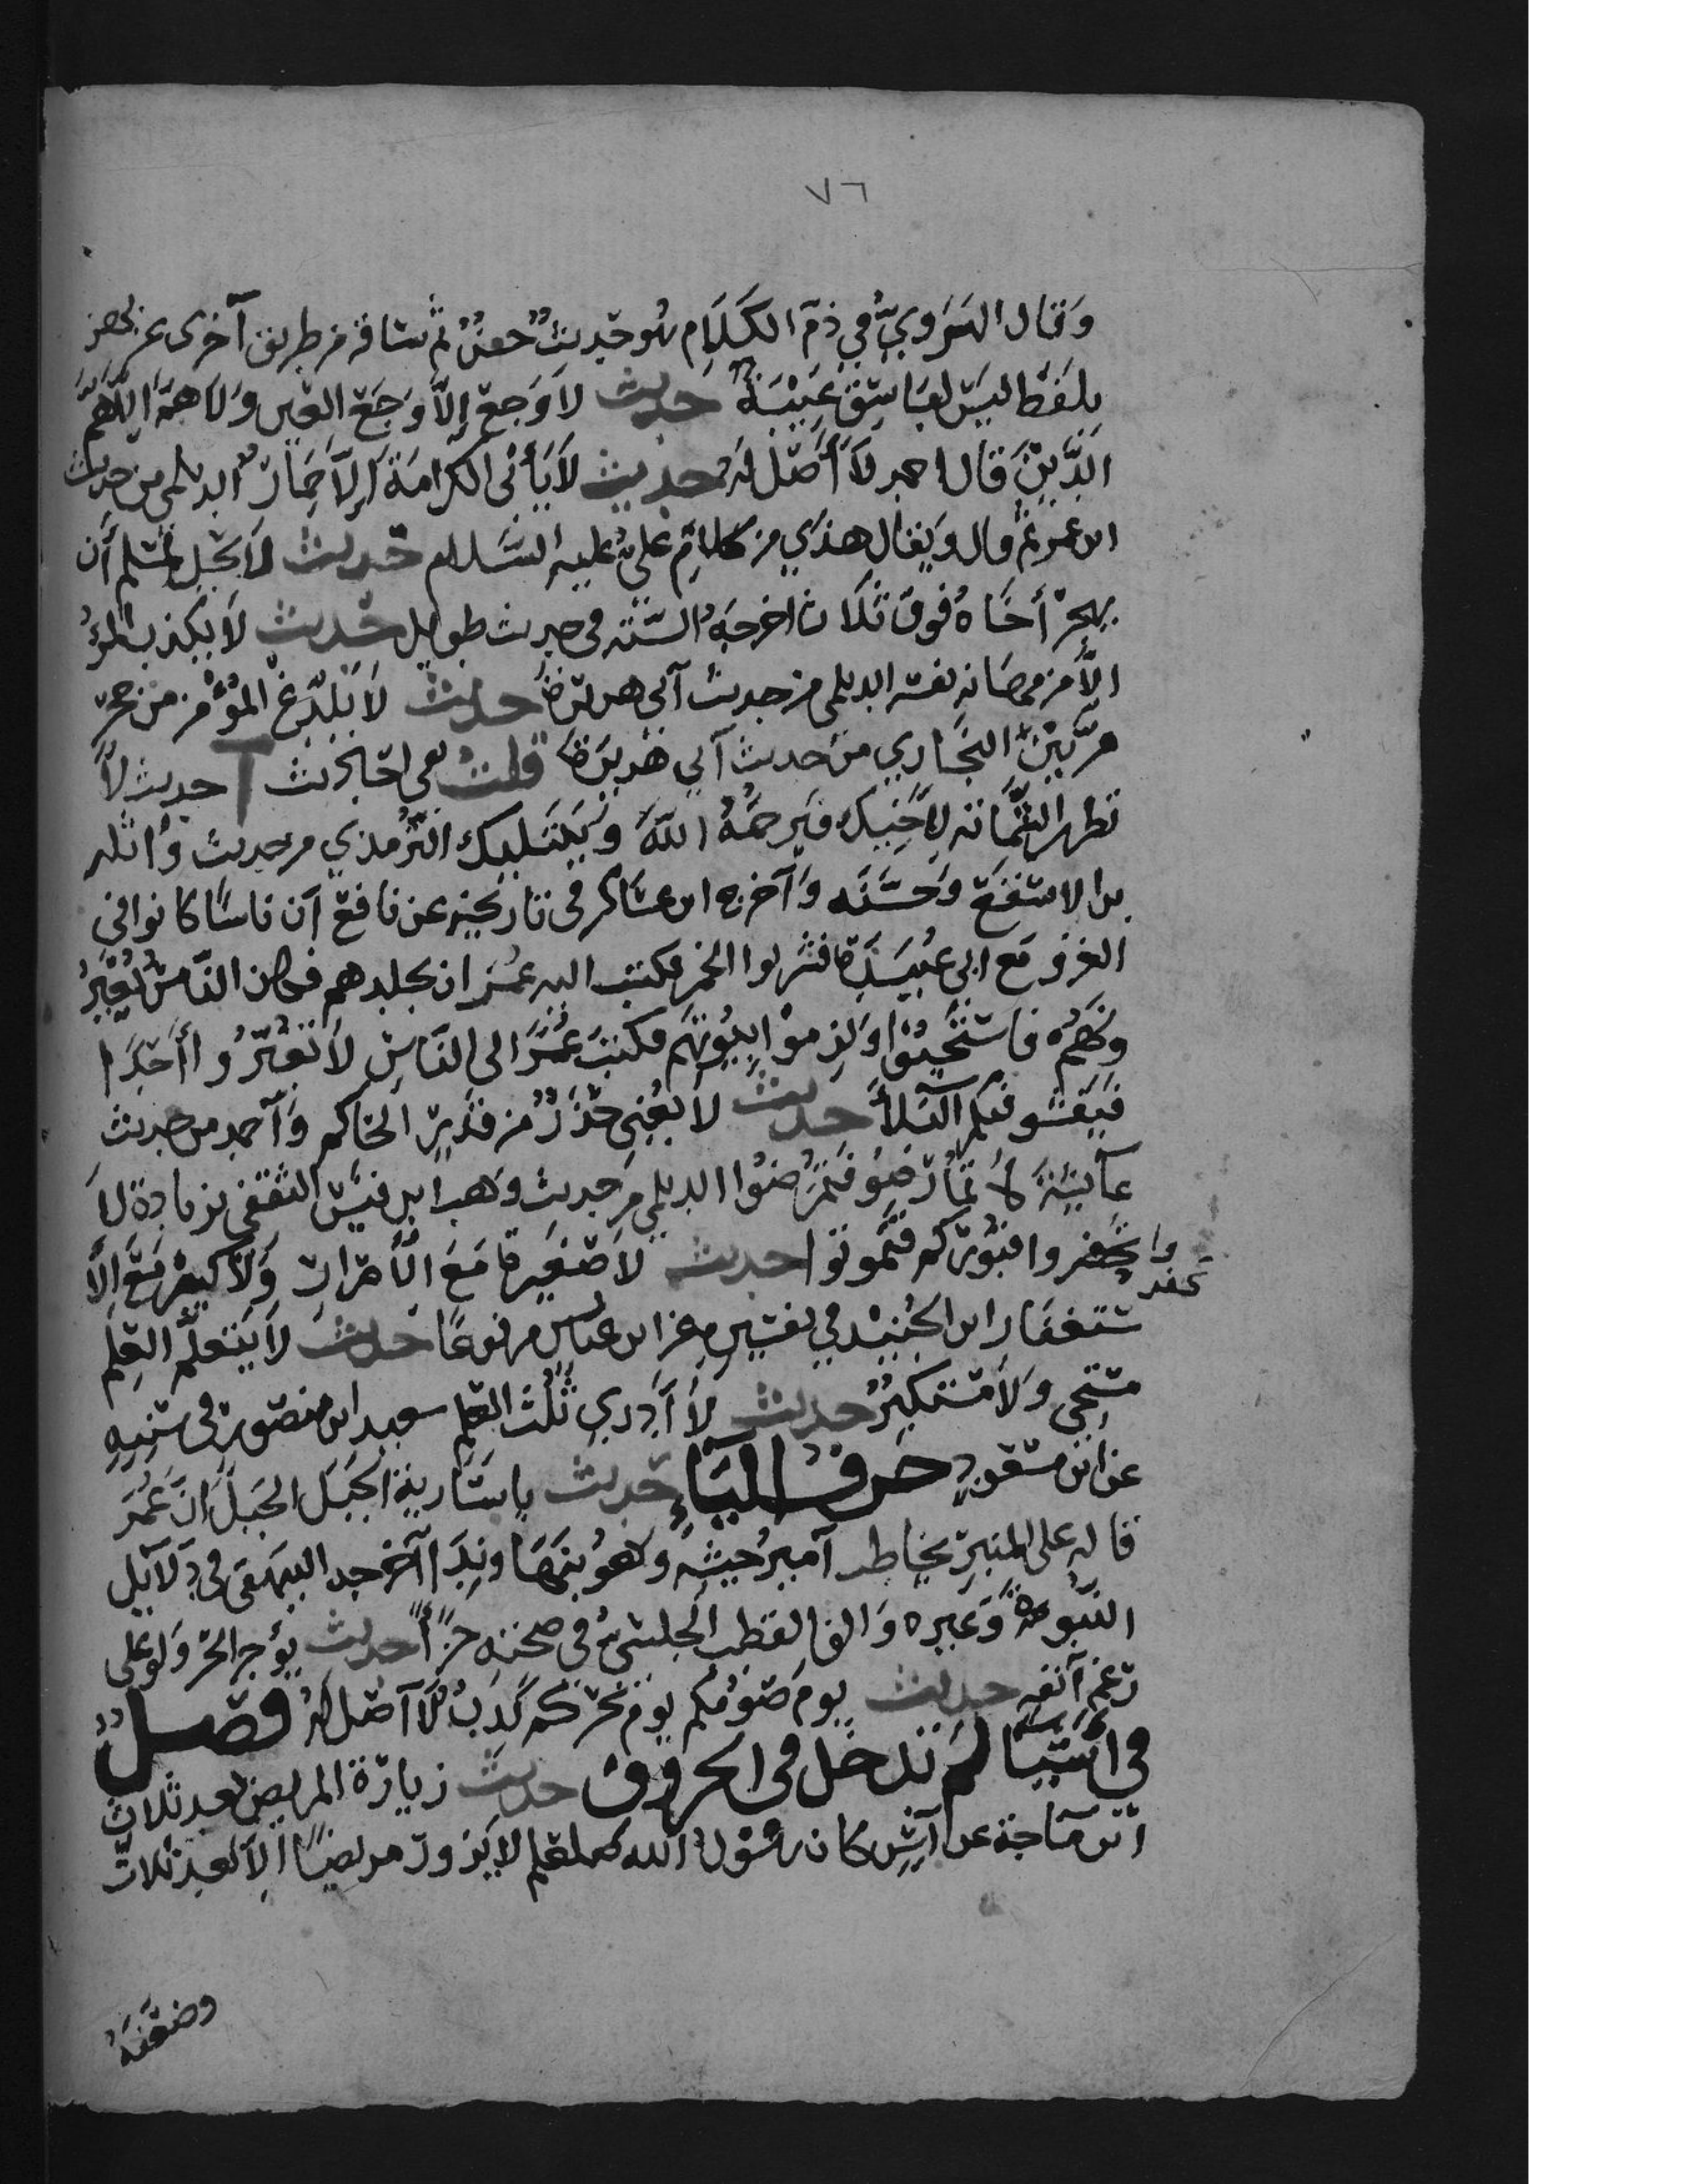 ٧٦
وَقال الهَرَوِيُّ في ذمّ الكَلَامِ هُو حَديثٌ حسَنٌ ثم ساقه من طريق آخرى عن بهز
بلَفظ ليسَ لفَاسِقٍ غِيْبَةٌ حديث لا وَجع إلّا وَجَع العَين وَلا هَمّ إلّا هَمّ
الدَّيْنِ قال احمد لا أَصْلَ لَهُ حديث لَا يَأبى الكرامَة إلّا حِمَارٌ الديلمي من حديث
ابن عمر ثم قال وَيقال هذي من كلامِ عَليّ عليه السَّلام حديث لا يحِل لمسلم أن
يهجرَ أخَاهُ فوق ثَلَاث اخرجَهُ السّتة في حديث طويل حديث لا يكذب المرؤُ
الّا من مهانة نفسه الديلمي من حديث آبي هريرَة حديث لَا يُلْدَغُ المُؤْمِن من جحر
مرَّتَيْن البخَاري من حديث آبي هُريرَة قلت حديث لَا
تظهر الشَّمَاتَة لِأَخِيكَ فيَرحَمُهُ اللهُ وَيَبْتَلِيكَ التّرمذي من حديث وَاثلة
بن الاسقع وَحَسَّنَه وَآخرج ابن عسَاكر في تاريخِه عن نافع آن ناسًا كانوا في
الغزو مَع ابي عُبَيدَة فشربوا الخمر فكتب اليه عمُر ان يجلدهم فكان النّاسَ يُعَيّرُ
وَنَهُم فاستَحْيَوْا وَلزموْا بُيُوْتهَم فكتبَ عُمَرُ الى النّاسِ لَا تُعَيّرُوا أحَدًا
فيَفشو فيكم البَلأَ حديث لا يُغْنى حَذَرٌ من قَدَرٍ الحَاكم وَآحمد من حديث
عآئِشَةَ لا تمارَضُو فَتَمرَضُوا الديلمي من حديث وَهب ابن قيس الثقفي بزيادة لا
وا تحفروا قبُوركم فتَموتوا حديث لا صَغيرة مَعَ الأصْرارِ وَلَا كبيرَة مَعَ الا
تحفر
ستغفَار ابن المُنْذر في تفسيره عن ابن عباس مرفوعًا حديث لَا يَتعلَّم العِلم
مستحي وَلَا مستكبرٌ حديث لَا أَدري ثُلُث العِلم سعيد ابن منصُور في سُننِهِ
عن ابن مسعودٍ حَرفُ اليَاءِ حديث يا سَاريةُ الجَبَل الجَبَلَ انّ عُمَر
قاله على المنبر يخاطب آمير جيشه وَهُوَ بنهَاوند آخرجه البيهقي في دَلآئل
النّبُوةِ وَغيره وَالف القطب الحلبيُّ في صحته جزأً حديث يؤجر المرْ وَلوعلى
رَغمِ آنفِهِ حديث يوم صَوْمكم يَوم نحركم كَذِبٌ لَا آصل لَهُ فصْلٌ
في أشيَا لم تدخل في الحروف حديث زيارة المريض بعد ثلاث
ابن مَاجة عن أنسٍ كان رسُولُ الله صلعلم لا يَزور مريضًا إلا بعد ثلاث
وضعّفَهُ